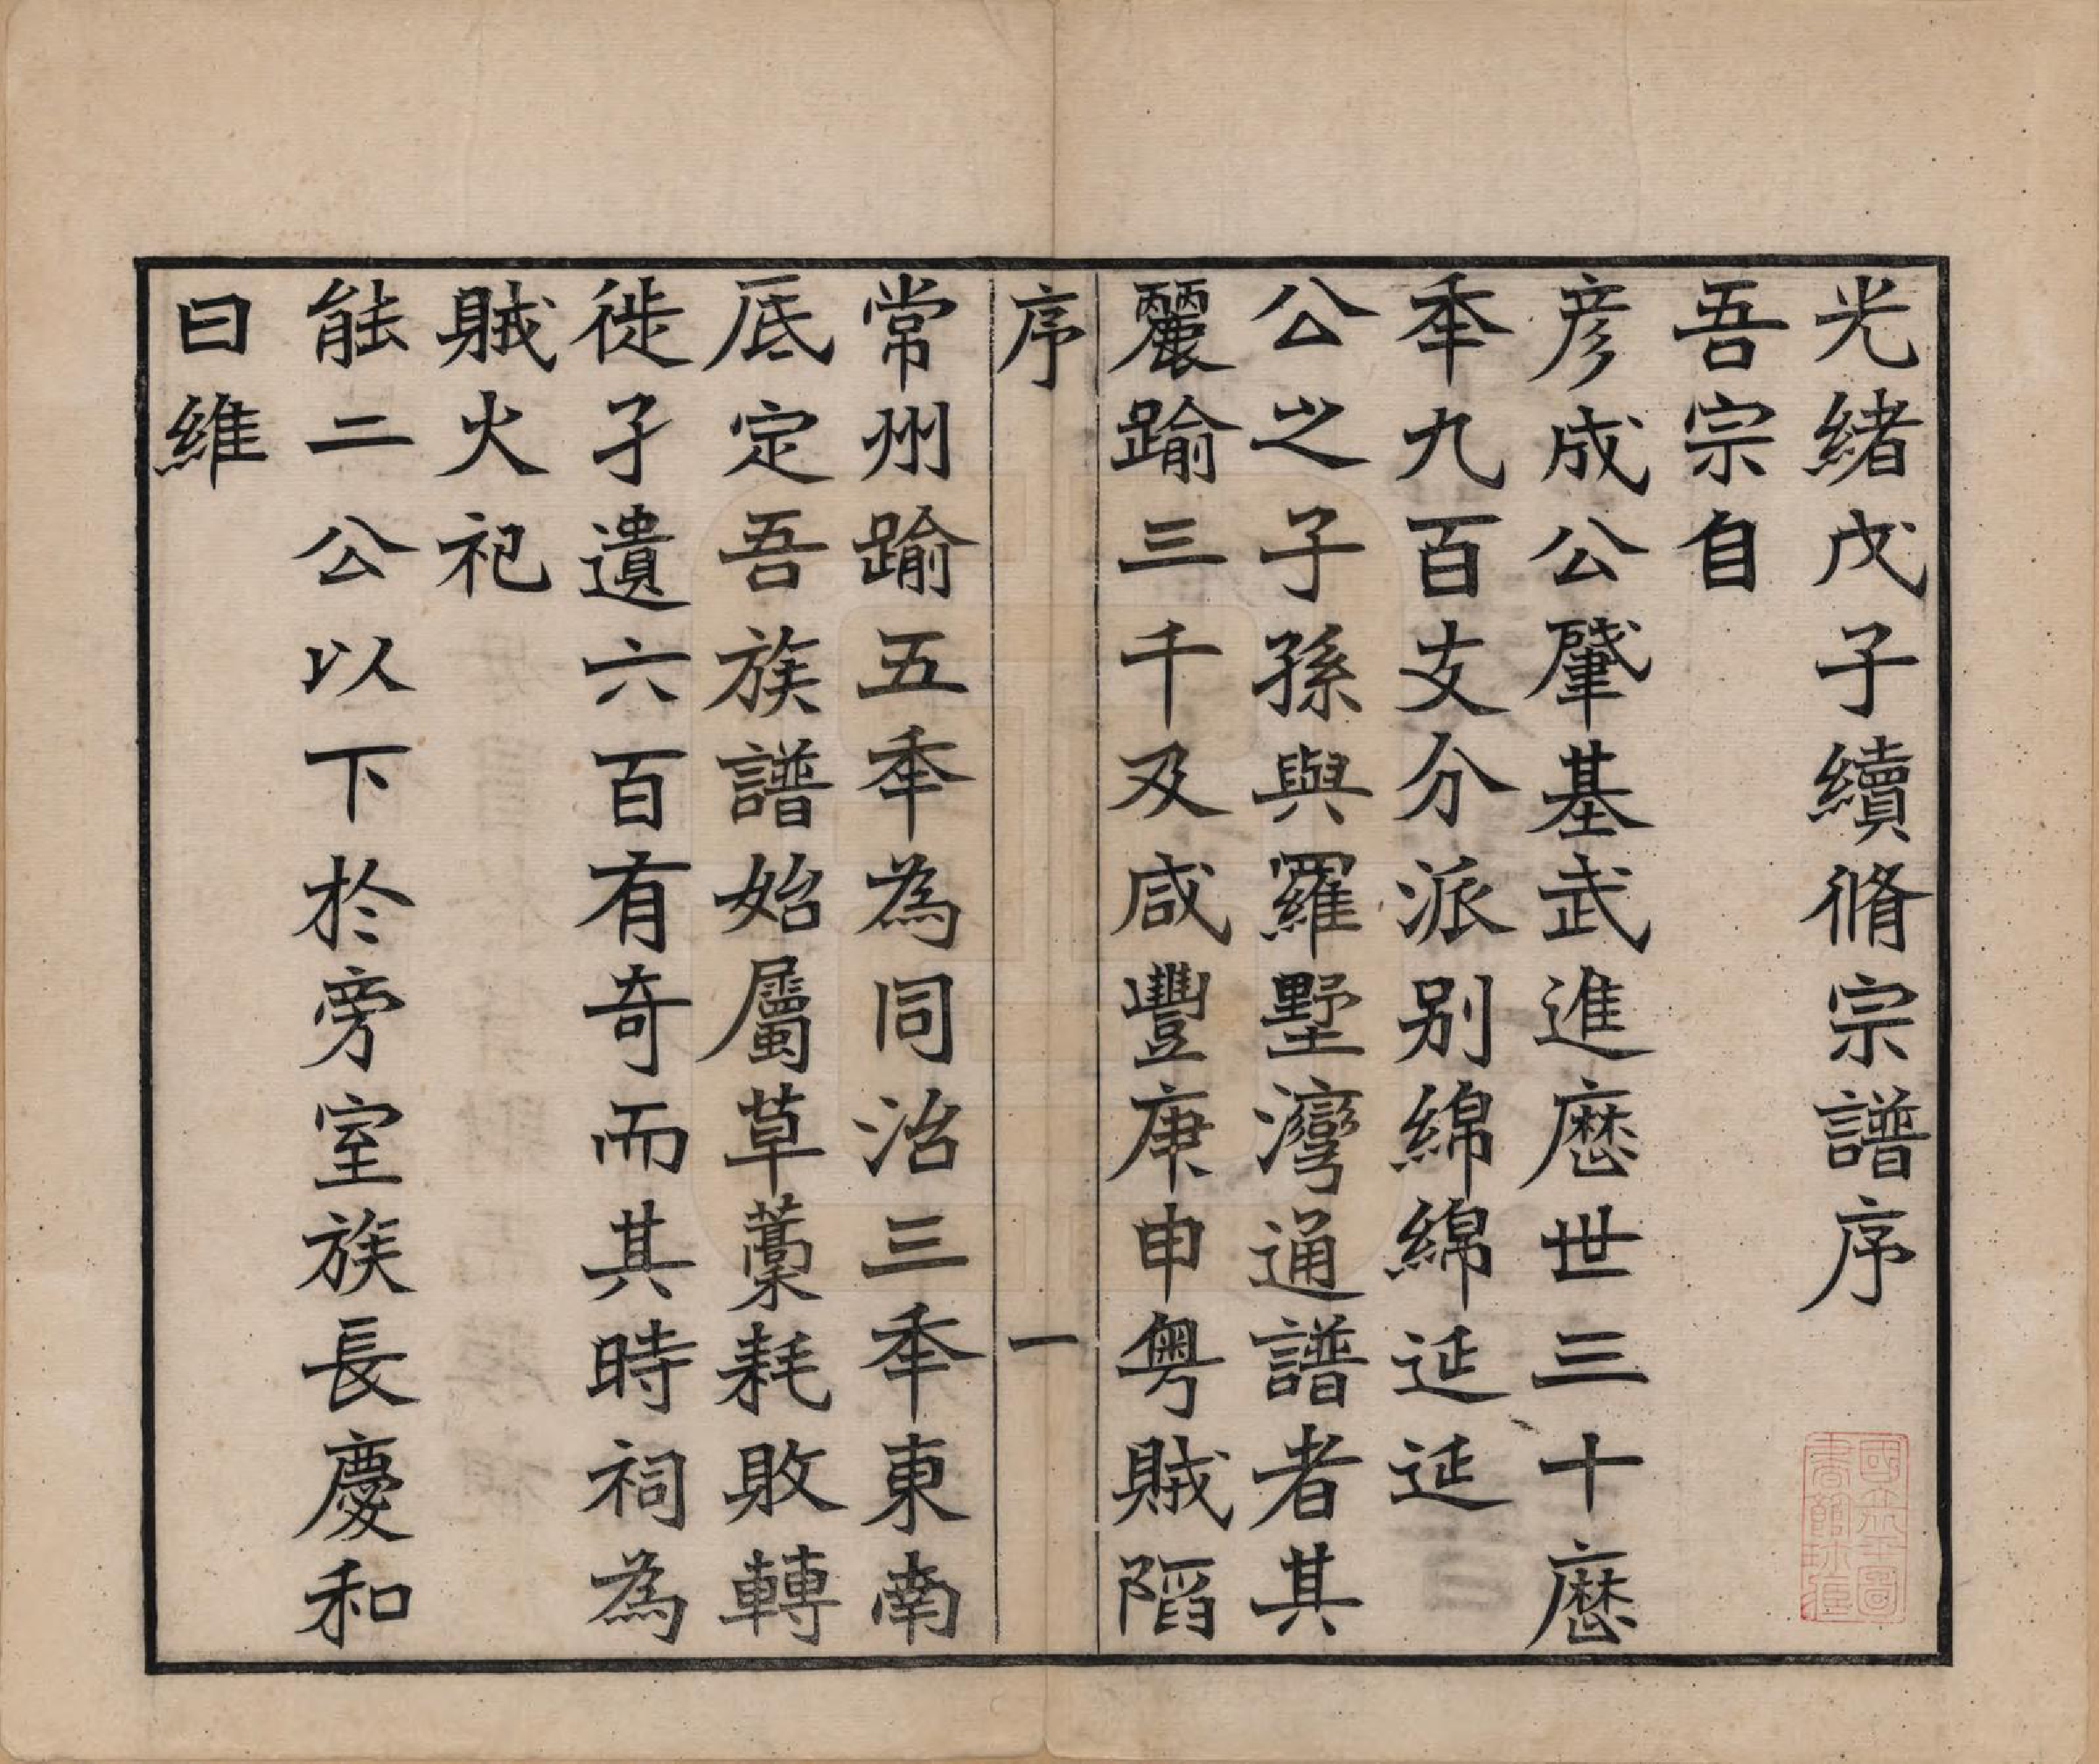 光緒戊子續脩宗譜序
吾宗自
彥成公肇基武進厯世三十厯
秊九百支分派別綿綿延延
公之子孫與羅墅灣通譜者其
麗踰三千及咸豐庚申粵賊陷
序 一
常州踰五秊為同治三秊東南
底定吾族譜始屬草藁耗敗轉
徙孑遺六百有奇而其時祠為
賊火祀
能二公以下於旁室族長慶和
曰維
國立北平圖書館珍藏